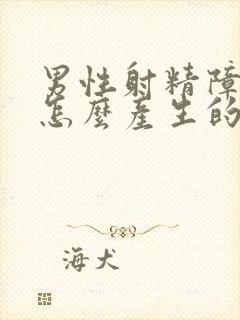 男性射精障
怎麼產生的
海犬